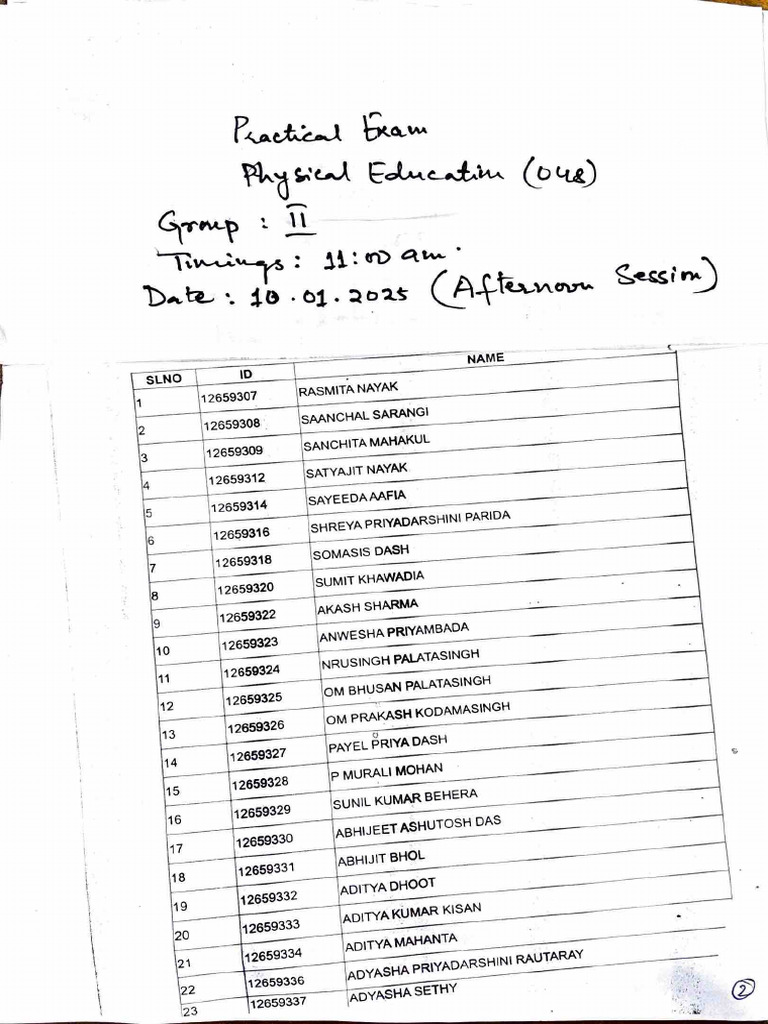 Practical Exam
Physical Education (048)
Group : II
Timings : 11:00 am.
Date : 10.01.2025 (Afternoon Session)
SLNO ID NAME
1 12659307 RASMITA NAYAK
2 12659308 SAANCHAL SARANGI
3 12659309 SANCHITA MAHAKUL
4 12659312 SATYAJIT NAYAK
5 12659314 SAYEEDA AAFIA
6 12659316 SHREYA PRIYADARSHINI PARIDA
7 12659318 SOMASIS DASH
8 12659320 SUMIT KHAWADIA
9 12659322 AKASH SHARMA
10 12659323 ANWESHA PRIYAMBADA
11 12659324 NRUSINGH PALATASINGH
12 12659325 OM BHUSAN PALATASINGH
13 12659326 OM PRAKASH KODAMASINGH
14 12659327 PAYEL PRIYA DASH
15 12659328 P MURALI MOHAN
16 12659329 SUNIL KUMAR BEHERA
17 12659330 ABHIJEET ASHUTOSH DAS
18 12659331 ABHIJIT BHOL
19 12659332 ADITYA DHOOT
20 12659333 ADITYA KUMAR KISAN
21 12659334 ADITYA MAHANTA
22 12659336 ADYASHA PRIYADARSHINI RAUTARAY
23 12659337 ADYASHA SETHY
2